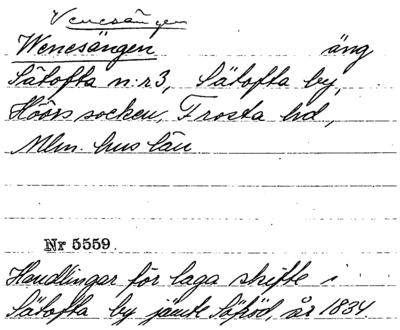 Venesängen
Wenesängen äng
Sätofta n:r3, Sätofta by,
Höörs socken, Frosta hd,
Mlm. hus län
Nr 5559.
Handlingar för laga skifte i
Sätofta by jämte år 1834.